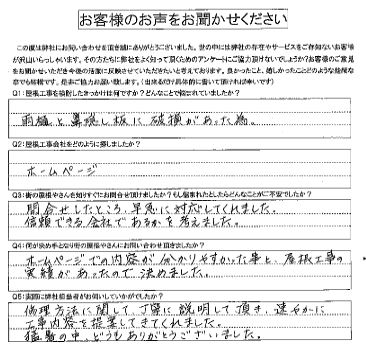 お客様のお声をお聞かせください
この度は弊社にお問い合わせを頂き誠にありがとうございました。世の中には弊社の存在やサービスをご存知ないお客様
が沢山いらっしゃいます。その方たちに弊社をよく知って頂くためのアンケートにご協力頂けないでしょうか?お客様のご意見
をお聞かせいただき今後の活動に反映させていただきたいと考えております。良かったこと、嬉しかったことどのような些細な
事でも結構です。是非ご協力お願い致します。(出来るだけ具体的に書いて頂ければ幸いです)
Q1:屋根工事を検討したきっかけは何ですか?どんなことで悩まれていましたか?
雨樋と鼻隠し板に破損があった為。
Q2:屋根工事会社をどのように探しましたか?
ホームページ
Q3:街の屋根やさんを知りすぐにお問合せ頂けましたか?もし悩まれたとしたらどんなことが不安でしたか?
問合せしたところ、早急に対応してくれました。
信頼できる会社であるかを考えました。
Q4:何が決め手となり街の屋根やさんにお問い合わせ頂きましたか?
ホームページでの内容が分かりやすかった事と、屋根工事の
実績があったので決めました。
Q5:実際に弊社担当者がお伺いしていかがでしたか?
修理方法に関して、丁寧に説明して頂き、速やかに
工事内容を提案してきてくれました。
猛暑の中、どうもありがとうございました。